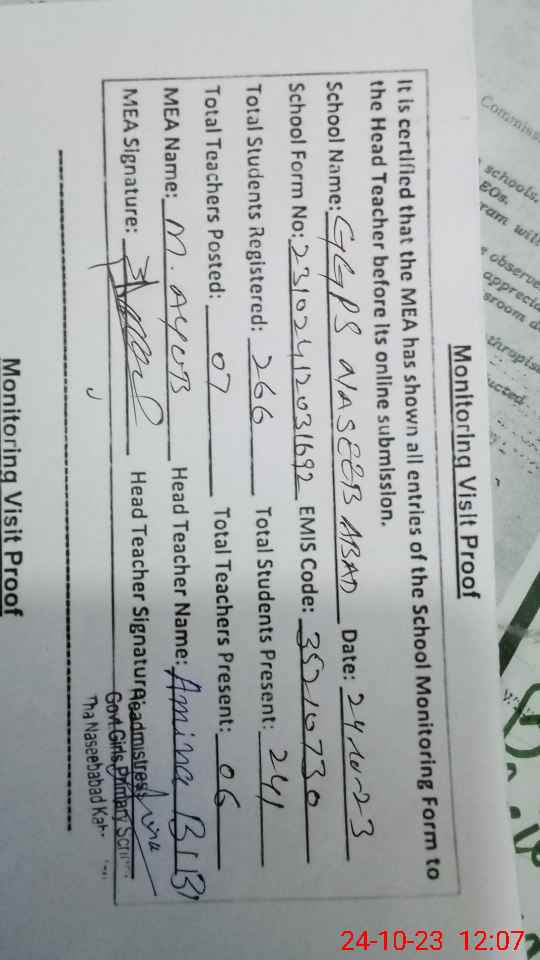 Monitoring Visit Proof
It is certified that the MEA has shown all entries of the School Monitoring Form to
the Head Teacher before its online submission.
School Name: GGPS NASEEB ABAD Date: 24-10-23
School Form No: 23102412031692 EMIS Code: 35210730
Total Students Registered: 266 Total Students Present: 241
Total Teachers Posted: 07 Total Teachers Present: 06
MEA Name: M. AYUB Head Teacher Name: Amina BIBI
MEA Signature: Head Teacher Signature:
Headmistress
Govt. Girls Primary School
Tha Naseebabad
Monitoring Visit Proof
Commiss
schools,
EOs.
ram will
observe
apprecia
sroom
thropis
ucted
24-10-23 12:07